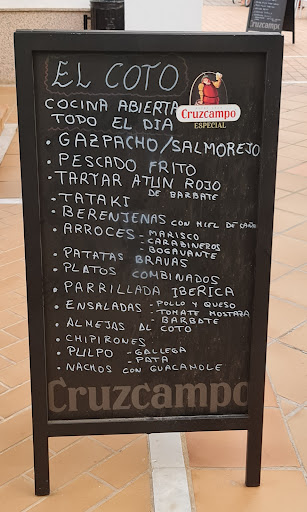 EL COTO
COCINA ABIERTA
TODO EL DIA
Cruzcampo
ESPECIAL
• GAZPACHO/SALMOREJO
• PESCADO FRITO
• TARTAR ATUN ROJO
DE BARBATE
• TATAKI
• BERENJENAS CON MIEL DE CAÑA
• ARROCES - MARISCO
- CARABINEROS
- BOGAVANTE
• PATATAS BRAVAS
• PLATOS COMBINADOS
• PARRILLADA IBERICA
• ENSALADAS - POLLO Y QUESO
- TOMATE MOSTAZA
- BARBATE
• ALMEJAS AL COTO
• CHIPIRONES
• PULPO - GALLEGA
- PATA
• NACHOS CON GUACAMOLE
Cruzcampo
Cruzcampo